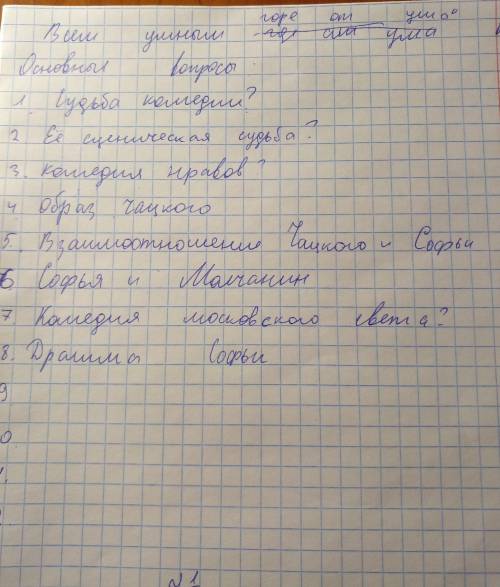 горе от ума"
Всем умным от ума
Основные вопросы
1. Судьба комедии?
2 Её сценическая судьба?
3. Комедия нравов?
4 Образ Чацкого
5. Взаимоотношении Чацкого и Софьи
6 Софья и Молчанин
7. Комедия московского света?
8. Драмма Софьи
9
0
1.
№1